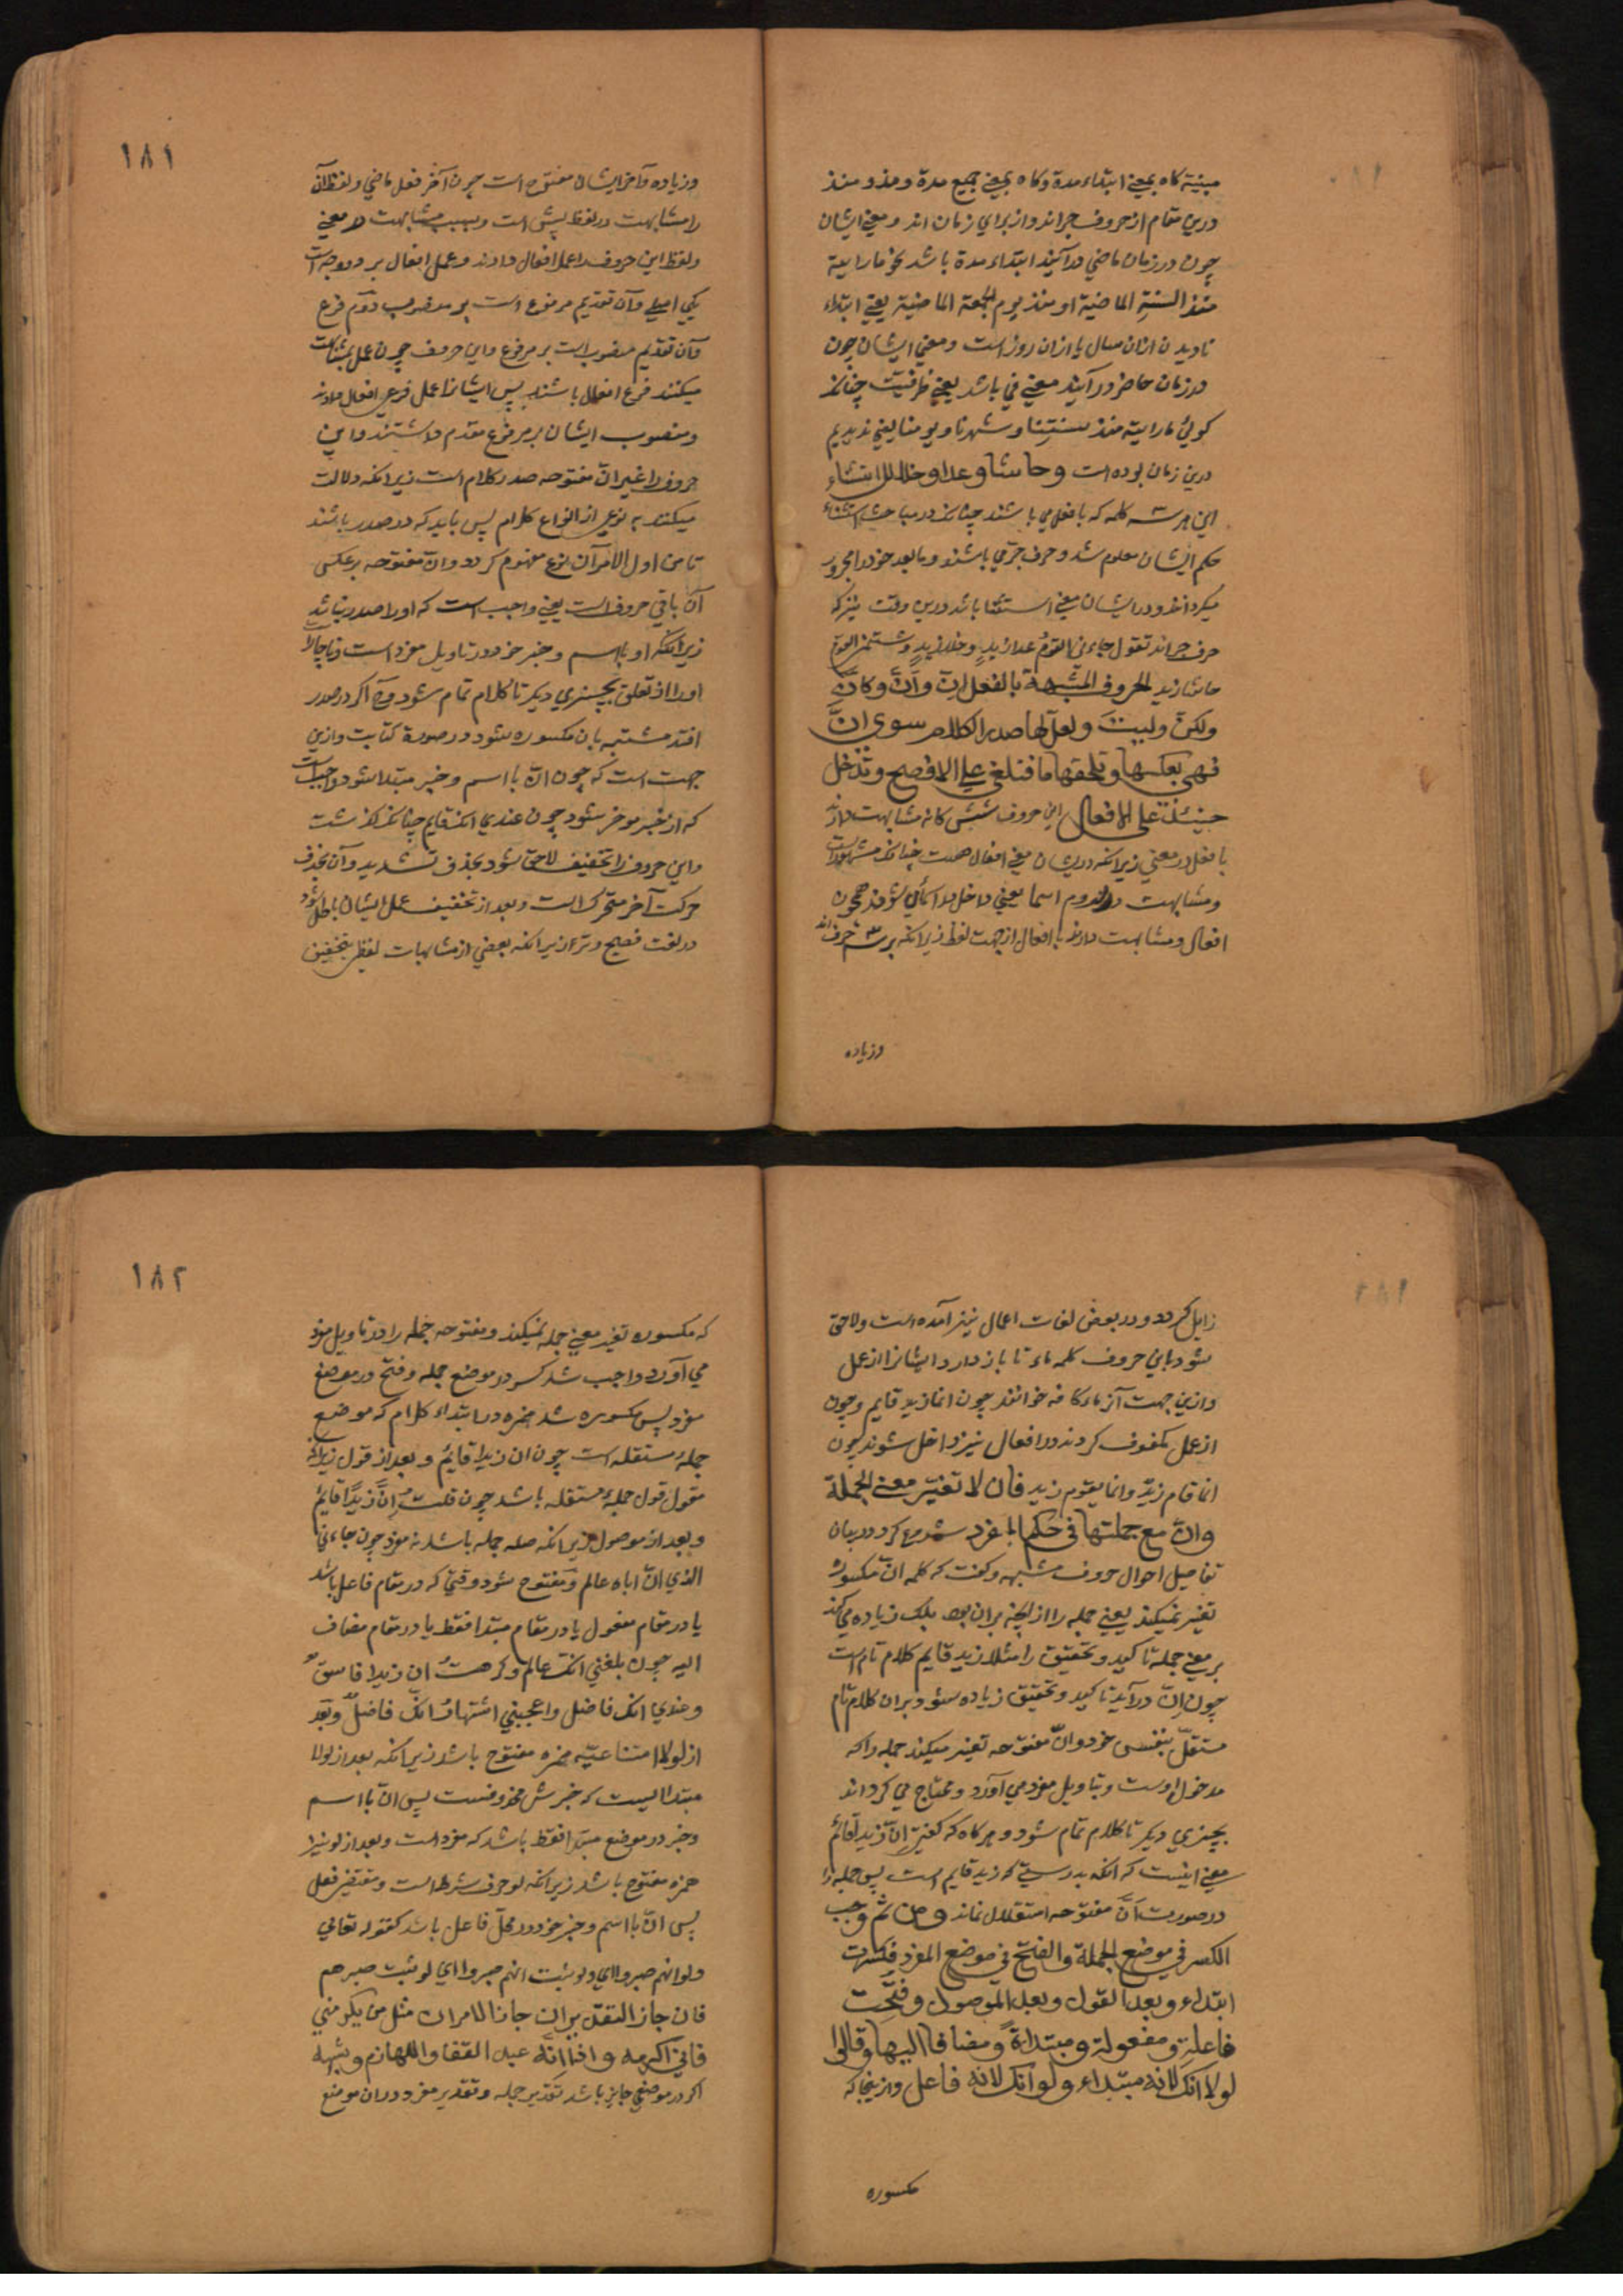 مبنیة کاه بمعنی ابتداء مدة وکاه بمعنی جمیع مدة ومذ و منذ
درین مقام از حروف جر اند واز برای زمان اند و معنی ایشان
چون در زمان ماضی در آیند ابتداء مدة باشد نحو ما رایته
منذ السنة الماضیة او منذ یوم الجمعة الماضیة یعنی ابتداء
نادیدن ازان سال یا ازان روز است ومعنی ایشان چون
در زمان حاضر در آیند معنی فی باشد یعنی ظرفیت چنانکه
کوئی ما رایته منذ سنتنا و شهرنا و یومنا یعنی ندیدیم
درین زمان بوده است وحاشا وعدا وخلا للاستثناء
این هر سه کلمه که بافعل می باشند چنانکه در مباحث استثناء
حکم ایشان معلوم شد و حرف جر می باشند و ما بعد خود را مجرور
میکردانند و در ایشان معنی استثنا باشد درین وقت نیز که
حرف جر اند تقول جاءنی القوم عدا زید وخلا زید
حاشا زید الحروف المشبهة بالفعل ان وان وکان
ولکن ولیت ولعل لها صدر الکلام سوی ان
فهی بعکسها وتلحقها ما فتلغی علی الافصح وتدخل
حینئذ علی الافعال این حروف شش کانه مشابهت دارند
بافعل در معنی زیرا نکه در ایشان معنی افعال هست چنانکه مشهور است
ومشابهت در لزوم اسما یعنی داخل در اسمائی شوند همچون
افعال ومشابهت دارند با افعال از جهت لفظ زیرا نکه بر سه حرف اند
وزیاده
۱۸۱
وزیاده وآخر ایشان مفتوح است چون آخر فعل ماضی ولفظ ان
را مشابهت در لفظ پیش است وبسبب مشابهت در معنی
ولفظ این حروف را عمل افعال دادند وعمل افعال بر دو وجه است
یکی اصلی وآن تقدیم مرفوع است بر منصوب دوم فرع
وآن تقدیم منصوب است بر مرفوع واین حروف چون عمل بمشابهت
میکنند فرع افعال باشند پس ایشانرا عمل فرعی افعال دادند
ومنصوب ایشان بر مرفوع مقدم داشتند واین
حروف را غیر ان مفتوحه صدر کلام است زیرا نکه دلالت
میکنند به نوعی از انواع کلام پس باید که در صدر باشند
تا من اول الامر آن نوع مفهوم کردد وان مفتوحه بر عکس
آن باقی حروف است یعنی واجب است که او را صدر نباشد
زیرا نکه او با اسم و خبر خود در تاویل مفرد است و ناچار
او را از تعلق بچیزی دیکر تا کلام تمام شود و اکر در صدر
افتد مشتبه بان مکسوره شود در صورة کتابت وازین
جهت است که چون ان با اسم وخبر مبتدا شود واجب است
که از خبر موخر شود چون عندی انک قایم چنانکه کذشت
واین حروف را تخفیف لاحق شود بحذف تشدید وآن بحذف
حرکت آخر متحرک است و بعد از تخفیف عمل ایشان باطل شود
در لغت فصیح وتر از زیرا نکه بعضی از مشابهات لفظی بتخفیف
زایل کردد ودر بعض لغات اعمال نیز آمده است ولاحق
شود باین حروف کلمه ماء تا باز دارد ایشانرا از عمل
وازین جهت آنرا ماء کافه خوانند چون انما زید قایم وچون
از عمل مکفوف کردند در افعال نیز داخل شوند چون
انما قام زید وانما یقوم زید فان لا تغیر معنی الجملة
وان مع جملتها فی حکم المفرد شروع کرد در بیان
تفاصیل احوال حروف مشبهه وکفت که کلمه ان مکسوره
تغییر نمیکند یعنی جمله را از آنچه بران بود بلک زیاده می کند
بر معنی جمله تاکید وتحقیق را مثلا زید قایم کلام تام است
چون ان در آید تاکید وتحقیق زیاده شود بران کلام تام
مستقل بنفس خود وان مفتوحه تغییر میکند جمله را که
مدخول اوست وبتاویل مفرد می آورد ومحتاج می کرداند
بچیزی دیکر تا کلام تمام شود و هر کاه که کفتی ان زیدا قائم
معنی اینست که انکه بدرستی که زید قایم است پس جمله را
در صورت ان مفتوحه استقلال نماند ومن ثم وجب
الکسر فی موضع الجملة والفتح فی موضع المفرد فکسرت
ابتداء وبعد القول وبعد الموصول وفتحت
فاعلة ومفعولة ومبتداة ومضافا الیها وقالوا
لولا انک لانه مبتداء ولو انک لانه فاعل وازینجا که
مکسوره
۱۸۲
که مکسوره تغیر معنی جمله نمیکند ومفتوحه جمله را در تاویل مفرد
می آورد واجب شد کسر در موضع جمله وفتح در موضع
مفرد پس مکسوره شد همزه در ابتداء کلام که موضع
جملهٔ مستقله است چون ان زیدا قایم وبعد از قول زیرا نکه
مقول قول جملهٔ مستقله باشد چون قلت ان زیدا قایم
وبعد از موصول زیرا نکه صله جمله باشد نه مفرد چون جاءنی
الذی ان اباه عالم ومفتوح شود وقتی که در مقام فاعل باشد
یا در مقام مفعول یا در مقام مبتدا فقط یا در مقام مضاف
الیه چون بلغنی انک عالم وکرهت ان زیدا فاسق
وعندی انک فاضل واعجبنی اشتهار انک فاضل وبعد
از لولا امتناعیه همزه مفتوح باشد زیرا نکه بعد از لولا
مبتدا ایست که خبرش محذوفست پس ان با اسم
وخبر در موضع مبتدا فقط باشد که مفرد است وبعد از لو نیز
همزه مفتوح باشد زیرا نکه لو حرف شرط است ومقتضی فعل
پس ان با اسم وخبر خود در محل فاعل باشد کقوله تعالی
ولو انهم صبروا ای ولو ثبت انهم صبروا ای لو ثبت صبرهم
فان جاز التقدیران جاز الامران مثل من یکرمنی
فانی اکرمه واذا انه عبد القفا واللهازم وشبهه
اکر در موضعی جایز باشد تقدیر جمله وتقدیر مفرد در ان موضع